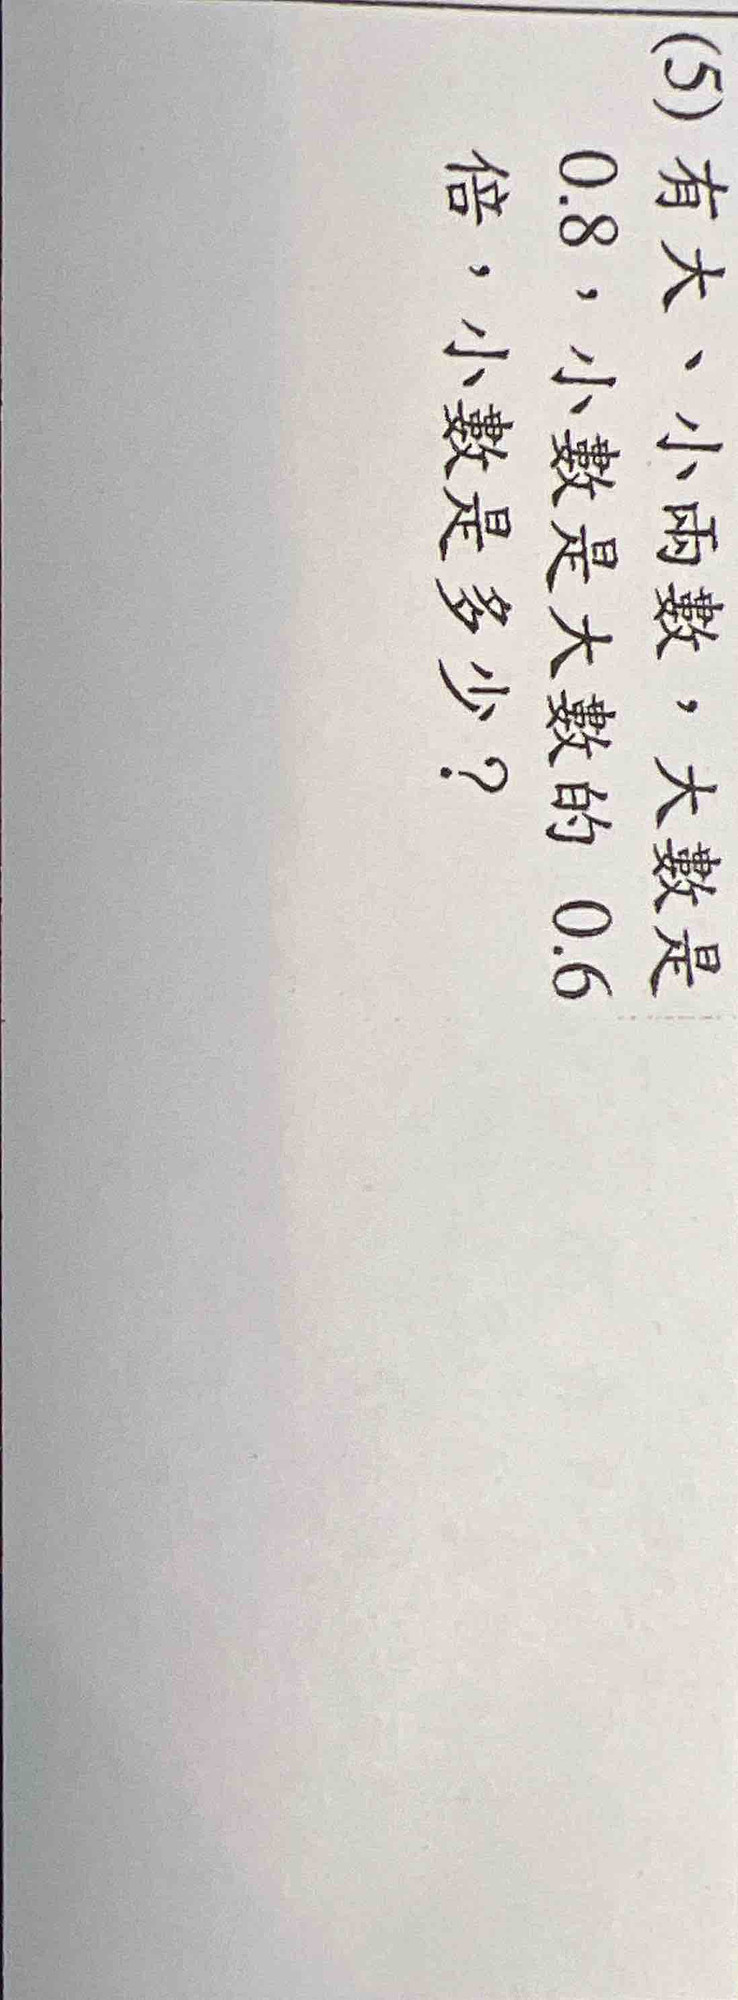 (5) 有大、小兩數，大數是
0.8，小數是大數的 0.6
倍，小數是多少？